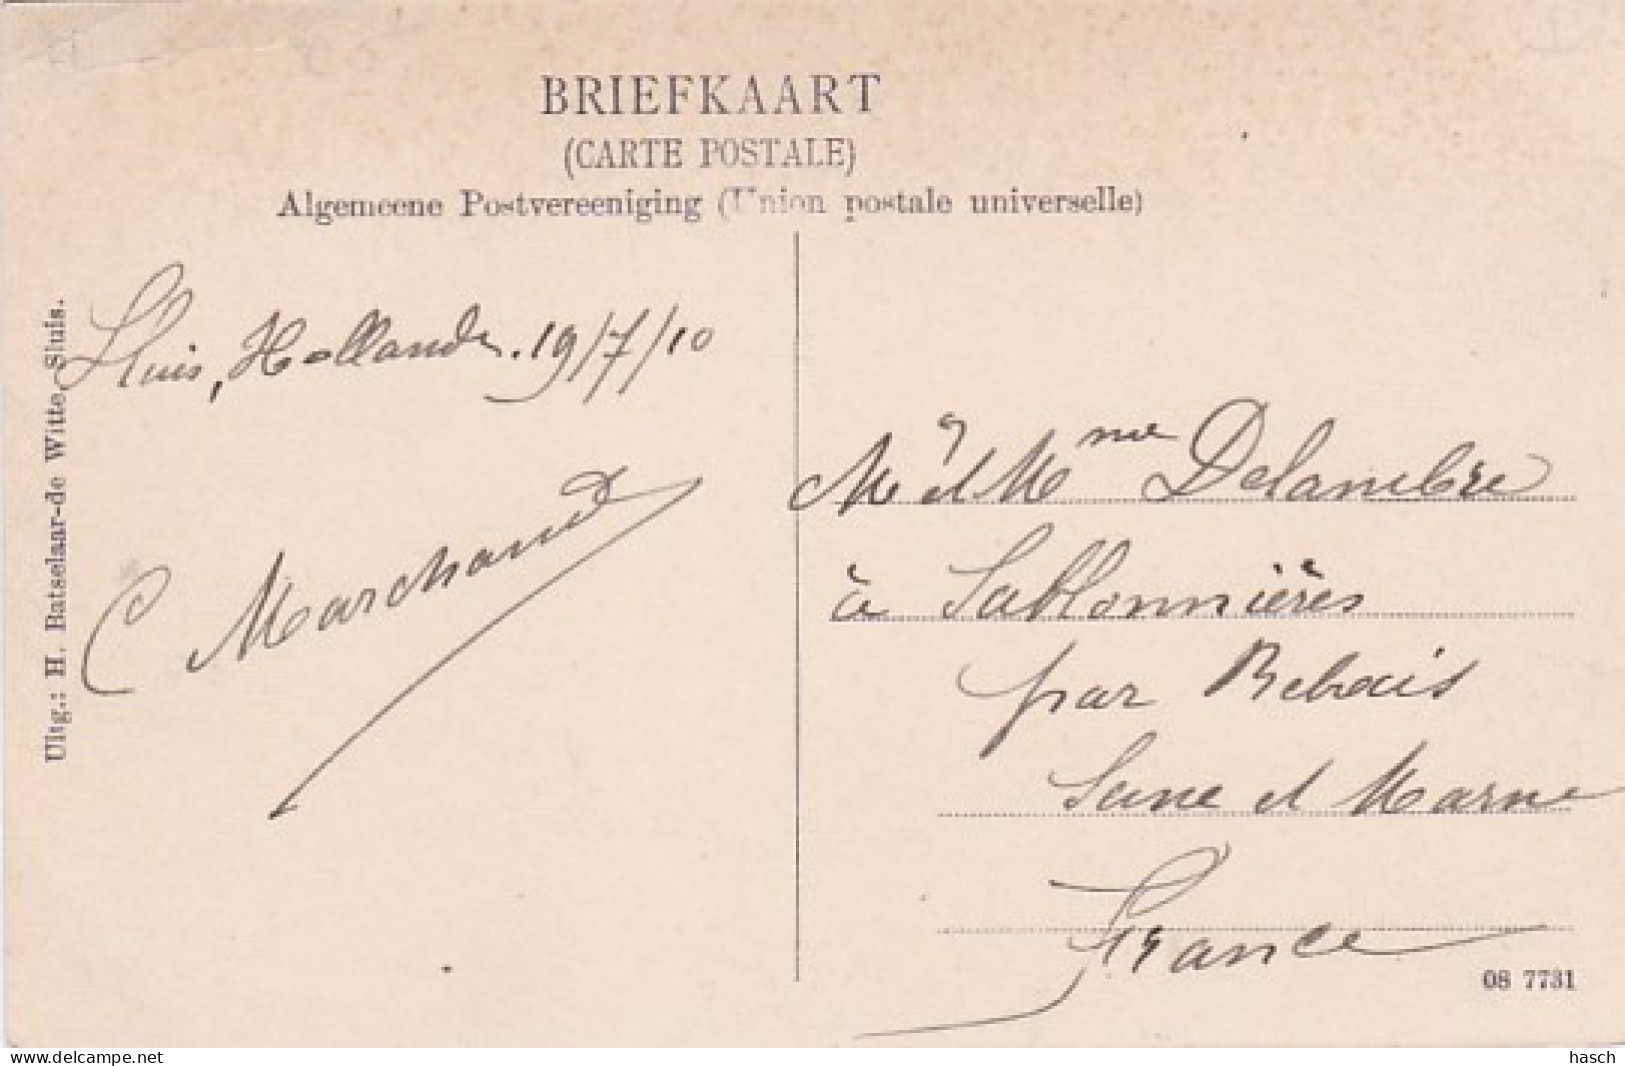 BRIEFKAART
(CARTE POSTALE)
Algemeene Postvereeniging (Union postale universelle)
Uitg.: H. Batselaar-de Witte, Sluis.
Sluis, Hollande. 19/7/10
C Marchand
Mr et Mme Delambre
à Sablonnières
par Rebais
Seine et Marne
France
08 7731
www.delcampe.net
hasch